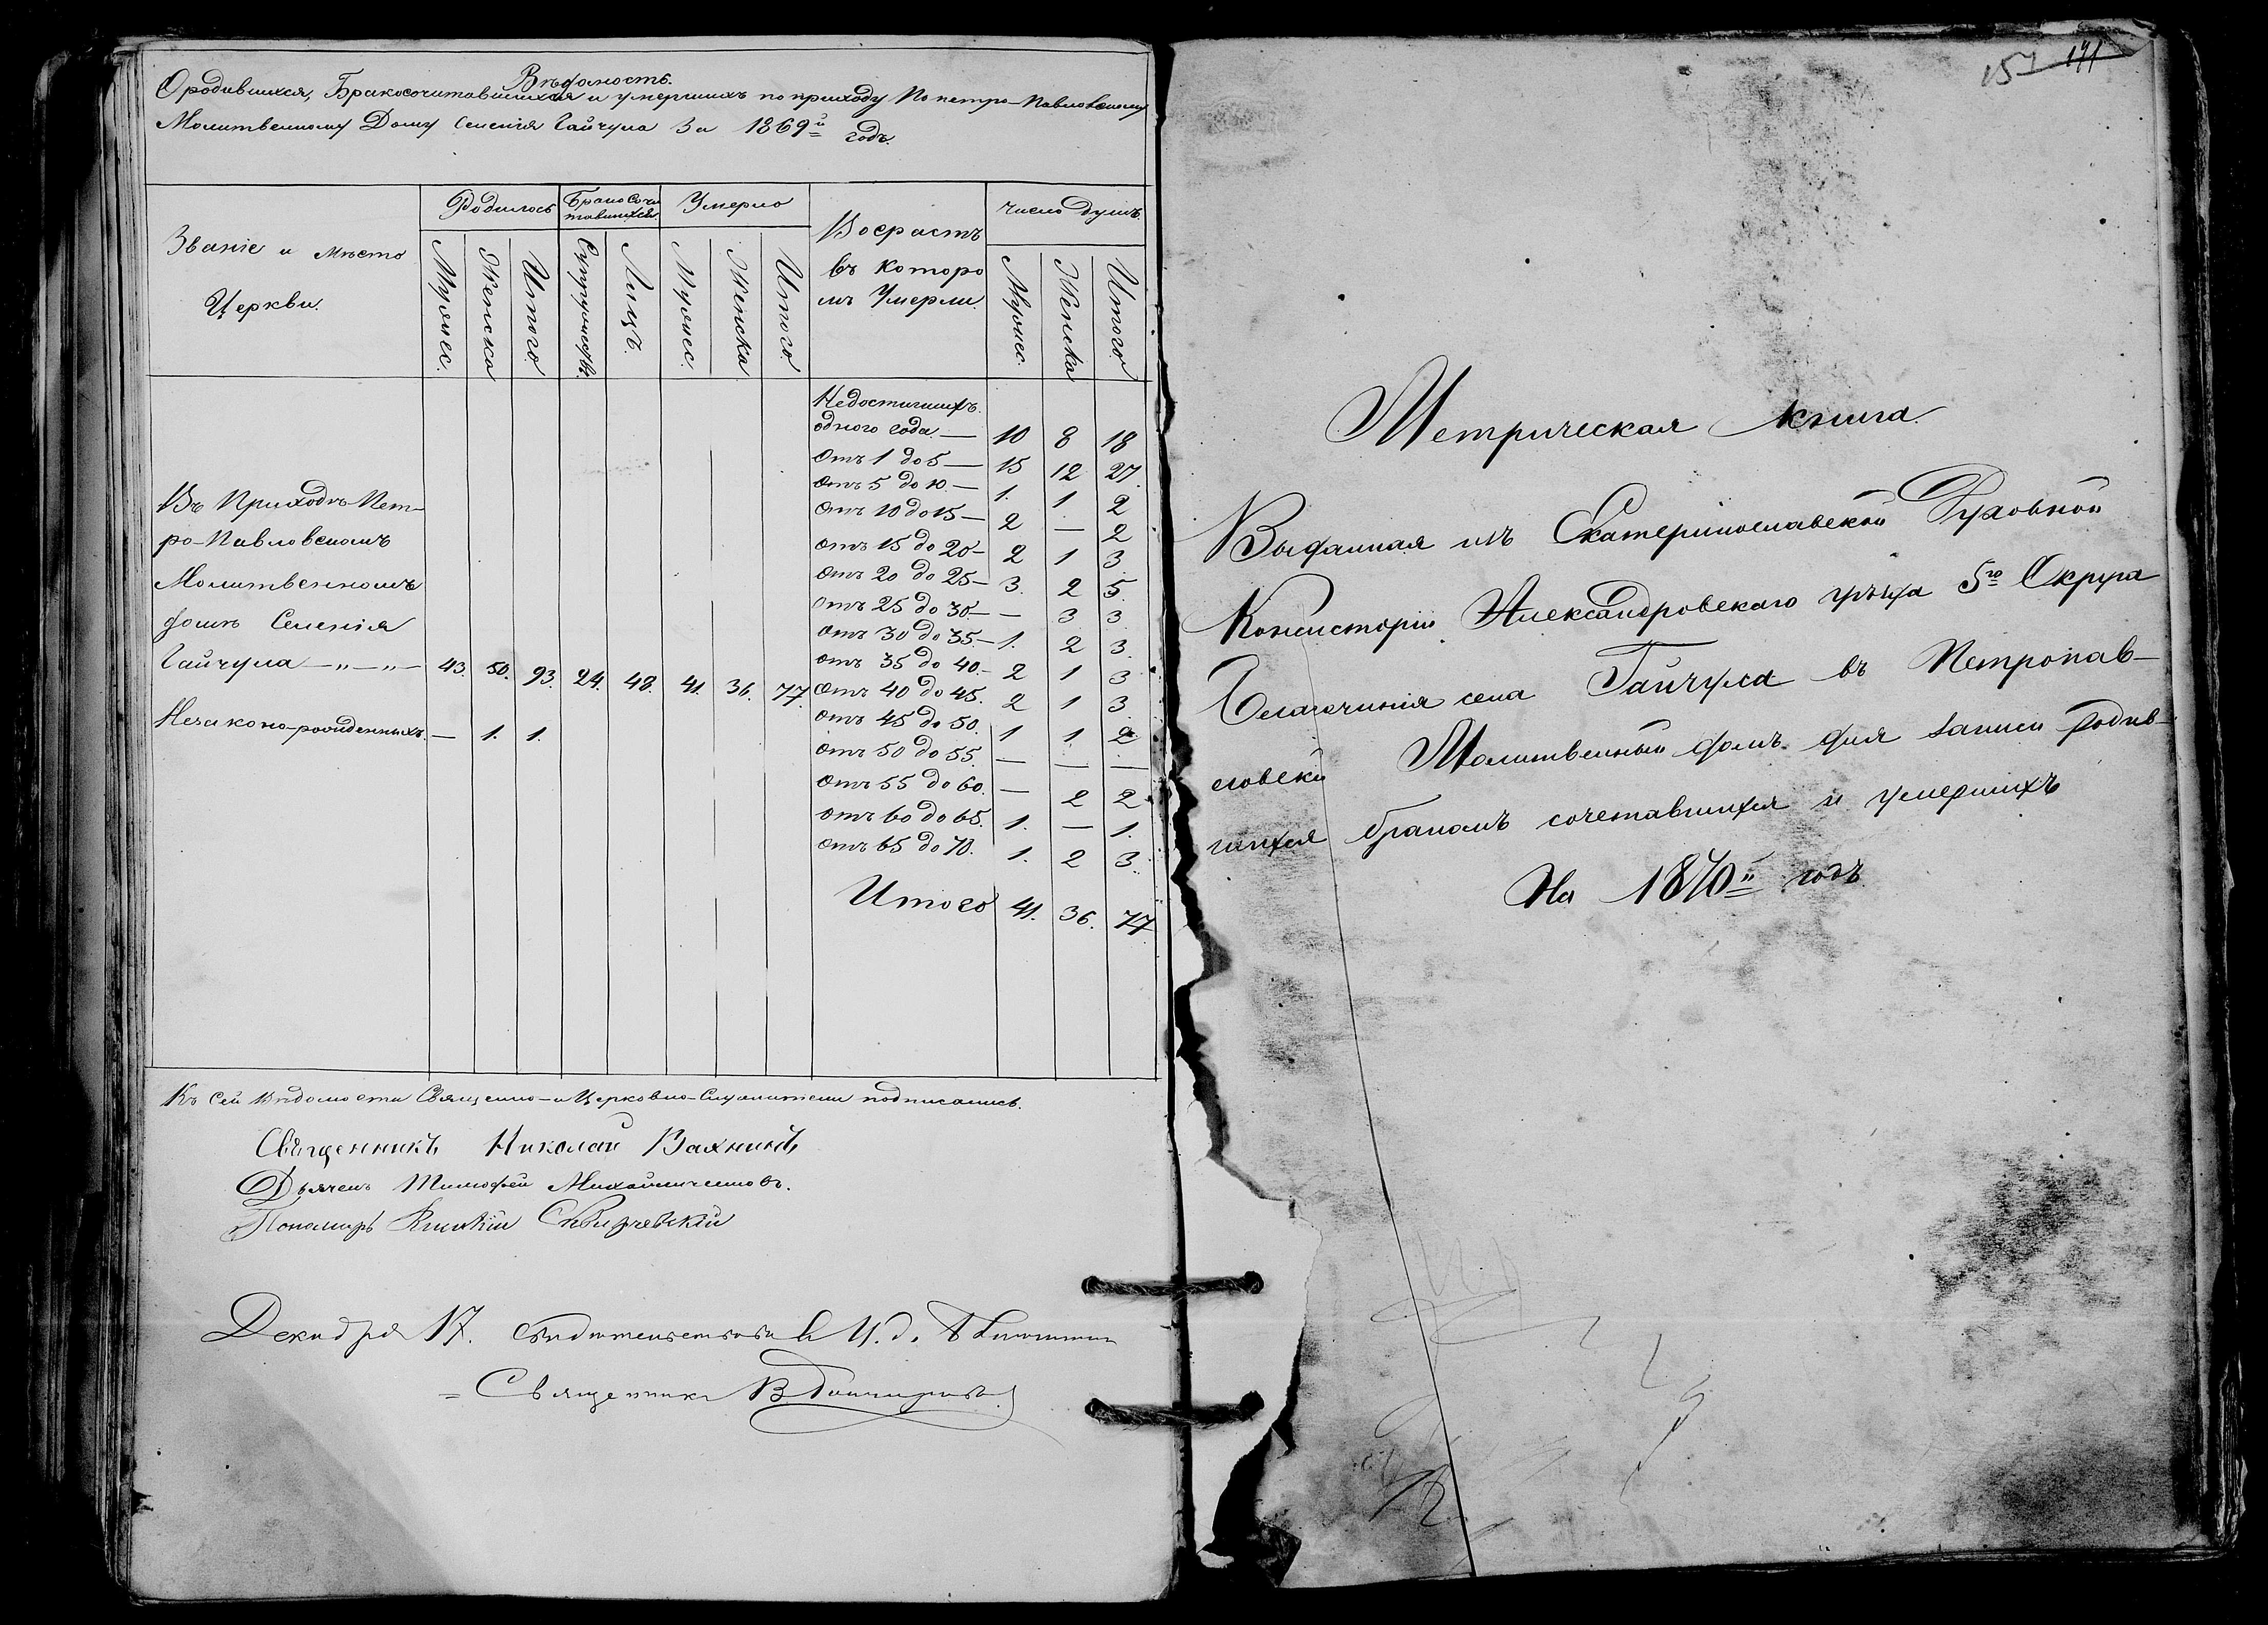 Вѣдомость.
О родившихся, Бракосочитавшихся и умершихъ по приходу По петро-Павловскому
Молитвенному Дому Селенія Гайчула За 1869й годъ.
Званіе и мѣсто Церкви.
Родилось
Бракосочитавшихся.
Умерло
Возрастъ въ которомъ Умерли.
Число душъ.
Мужес.
Женска
Итого
Супружествъ.
Лицъ.
Мужес.
Женска
Итого
Мужес.
Женска
Итого
Недостигшихъ
одного года — 10 8 18
Отъ 1 до 5 — 15 12 27.
Отъ 5 до 10. — 1. 1 2
Отъ 10 до 15 — 2 — 2
Отъ 15 до 20 — 2 1 3
Отъ 20 до 25 — 3. 2 5.
Отъ 25 до 30. — — 3 3
Отъ 30 до 35. — 1. 2 3.
Отъ 35 до 40. — 2 1 3
Отъ 40 до 45. 2 1 3
Отъ 45 до 50. 1 1 2
Отъ 50 до 55. — — —
Отъ 55 до 60. — 2 2
Отъ 60 до 65. 1. — 1.
Отъ 65 до 70. 1. 2 3.
Итого 41. 36. 77.
Въ Приходѣ Пет-
ро-Павловскомъ
Молитвенномъ
домѣ Селенія
Гайчула — „ — „ — 43. 50. 93. 24. 48. 41. 36. 77.
Незаконо-рожденныхъ — 1. 1.
Къ сей Вѣдомости Священно-и Церковно-Служители подписались.
Священникъ Николай Вахнинъ
Дьячекъ Тимофей
Пономарь
Декабря 17.
Священникъ В.
157 171
Метрическая книга.
Выданная изъ Екатеринославской Духовной
Консисторіи Александровскаго уѣзда 5го Округа
Благочинія села Гайчула въ Петропав-
ловскій Молитвенный домъ для записи родив-
шихся бракомъ сочетавшихся и умершихъ
На 1870й годъ.